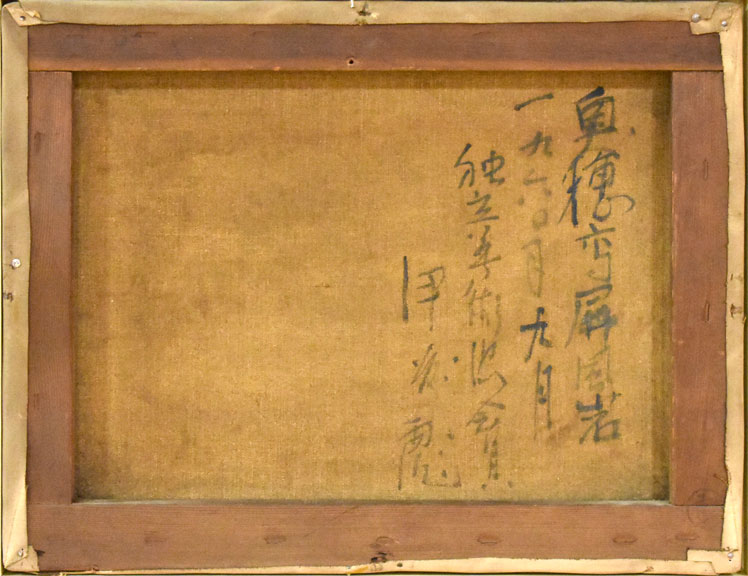 奥穂高屏風岩
一九六〇月九月
独立美術協会員
伊藤彪